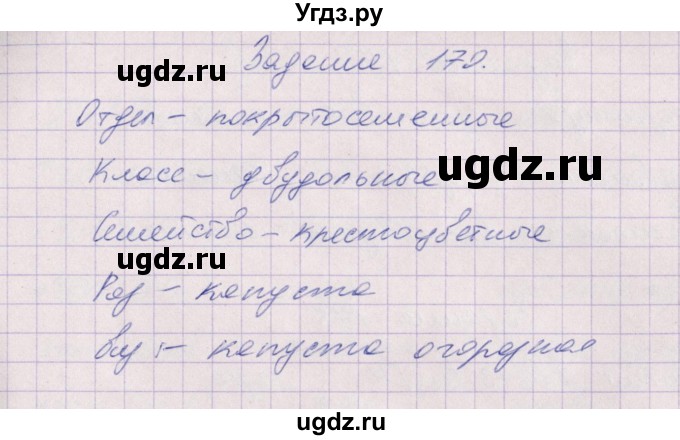 Угдз.ру
Задание 170.
ugdz.ru
Отдел - покрытосеменные
ugdz.ru
Класс - двудольные
ugdz.ru
Семейство - крестоцветные
ugdz.ru
Род - капуста
ugdz.ru
Вид - капуста огородная
ugdz.ru